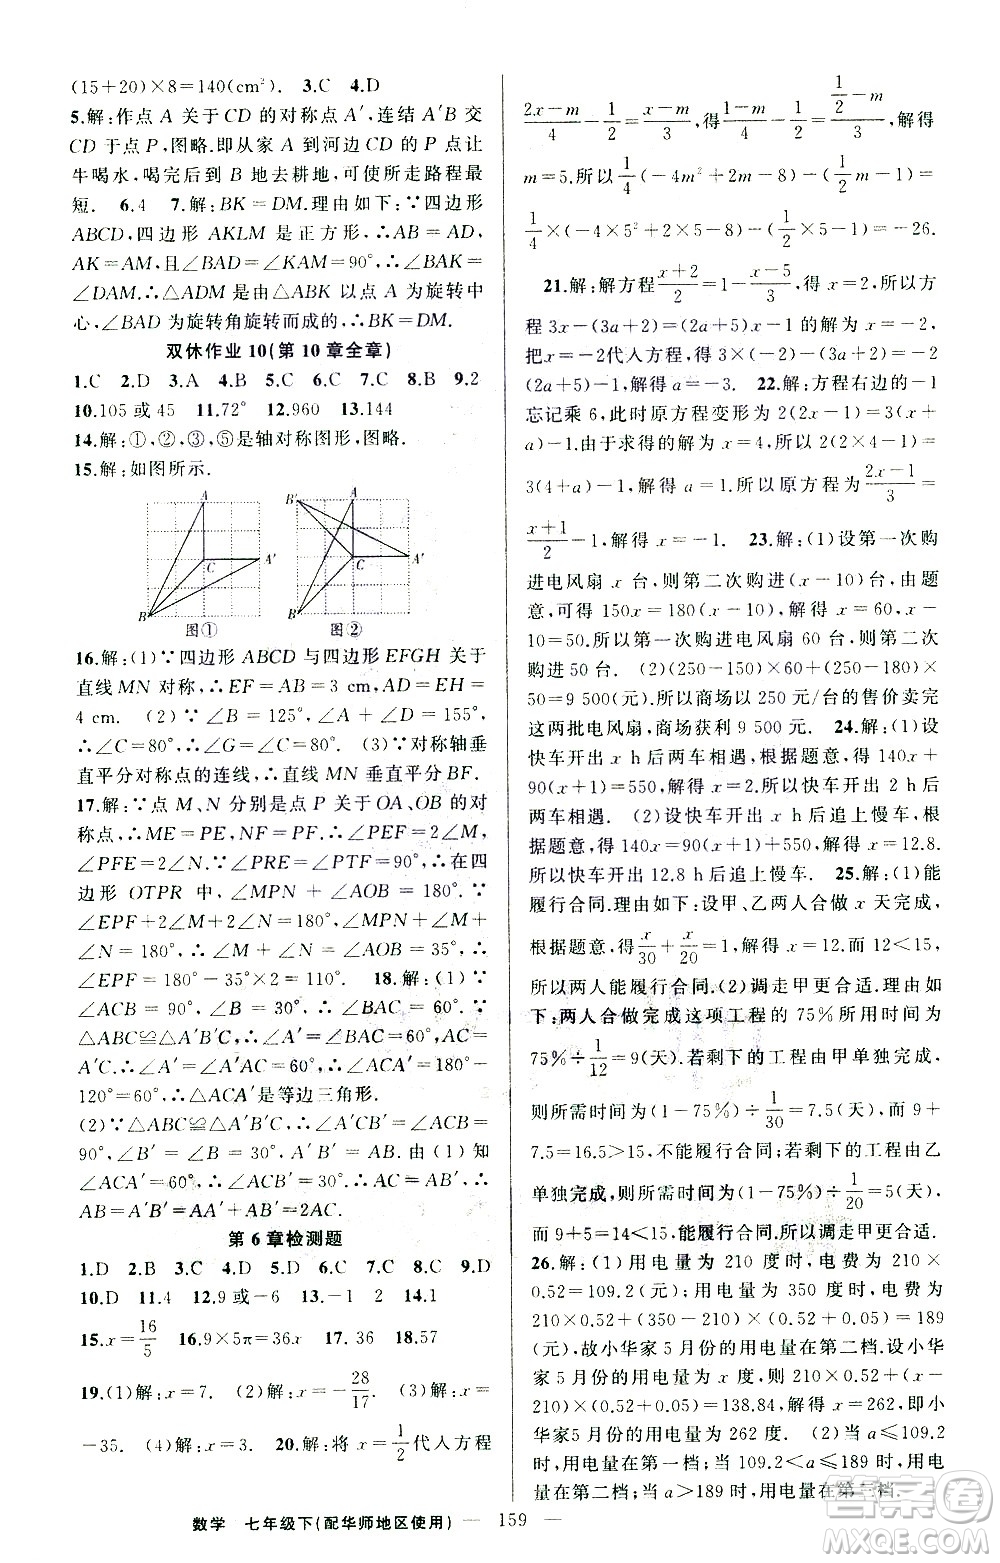 (15+20)×8=140(cm²).  3.C  4.D
5.解:作点 A 关于 CD 的对称点 A′,连结 A′B 交
CD 于点 P,图略.即从家 A 到河边 CD 的 P 处让
牛喝水,喝完后到 B 地去耕地,可使所走路程最
短.  6.4  7.解:BK=DM.理由如下:∵四边形
ABCD,四边形 AKLM 是正方形,∴AB=AD,
AK=AM,且∠BAD=∠KAM=90°,∴∠BAK=
∠DAM.∴△ADM 是由△ABK 以点 A 为旋转中
心,∠BAD 为旋转角旋转而成的,∴BK=DM.
双休作业 10(第 10 章全章)
1.C  2.D  3.A  4.B  5.C  6.C  7.C  8.B  9.2
10.105 或 45  11.72°  12.960  13.144
14.解:①,②,③,⑤是轴对称图形,图略.
15.解:如图所示.
A
C
A′
B
图①
B′
A
C
A′
B
图②
16.解:(1)∵四边形 ABCD 与四边形 EFGH 关于
直线 MN 对称,∴EF=AB=3 cm,AD=EH=
4 cm.  (2)∵∠B=125°,∠A+∠D=155°,
∴∠C=80°,∴∠G=∠C=80°.  (3)∵对称轴垂
直平分对称点的连线,∴直线 MN 垂直平分 BF.
17.解:∵点 M、N 分别是点 P 关于 OA、OB 的对
称点,∴ME=PE,NF=PF.∴∠PEF=2∠M,
∠PFE=2∠N.∵∠PRE=∠PTF=90°,∴在四
边形 OTPR 中,∴∠MPN+∠AOB=180°.∵
∠EPF+2∠M+2∠N=180°,∠MPN+∠M+
∠N=180°,∴∠M+∠N=∠AOB=35°,∴
∠EPF=180°-35°×2=110°.  18.解:(1)∵
∠ACB=90°,∠B=30°,∴∠BAC=60°.∵
△ABC≌△A′B′C,∴∠A′=∠BAC=60°,AC=
A′C.∴∠A′=∠A′AC=60°,∴∠ACA′=180°-
120°=60°,∴△ACA′是等边三角形.
(2)∵△ABC≌△A′B′C,∴∠A′CB′=∠ACB=
90°,∠B′=∠B=30°,由(1)知∠ACA′=60°,
∴∠ACB′=30°,∴∠ACB′=∠B′=30°,
∴AC=AB′=AA′,∴A′B′=2AC.
第 6 章检测题
1.D  2.B  3.C  4.D  5.C  6.A  7.B  8.C  9.D
10.D  11.4  12.9 或-6  13.-1  2  14.1
15.x=16/5  16.9×5π=36x  17.36  18.57
19.(1)解:x=7.  (2)解:x=-28/17.  (3)解:x=
-35.  (4)解:x=3.  20.解:将 x=1/2代入方程
(2x-m)/4=(x-m)/3,得(1-m)/4=(1/2-m)/3,解得
m=5.所以 1/4×(-4m²+2m-8)-(1/2m-1)=
1/4×(-4×5²+2×5-8)-(1/2×5-1)=-26.
21.解:解方程(x+2)/2=1-(x-5)/3得 x=2,所以方
程 3x-(2a-5)=5x-(3a+2)-5的解为 x=2.
把 x=2代入方程得 3×2-(2a-5)=5×2-
(2a+5).解得 a=-3.  22.解:方程右边的-1
忘记乘 6,此时原方程变形为 2(2x-1)=3(x+
a)-1.由于求得的解为 x=4,所以 2(2×4-1)=
3(4+a)-1,解得 a=1,所以原方程为(2x-1)/3=
(x+1)/2-1,解得 x=-1.  23.解:(1)设第一次购
进电风扇 x 台,则第二次购进(x-10)台,由题
意,可得 150x=180(x-10),解得 x=60,x-
10=50.所以第一次购进电风扇 60 台,第二次
购进 50 台.  (2)(250-150)×60+(250-180)×
50=9 500(元).所以商场以 250 元/台的售价卖完
这两批电风扇,商场获利 9 500 元.  24.解:(1)设
快车开出 x h 后两车相遇,根据题意,得 140x+
90(x+1)=550,解得 x=2.所以快车开出 2 h 后
两车相遇.  (2)设快车开出 x h 后追上慢车,根
据题意,得 140x=90(x+1)+550,解得 x=12.8.
所以快车开出 12.8 h 后追上慢车.  25.解:(1)能
履行合同.理由如下:设甲、乙两人合做 x 天完成,
根据题意,得x/30+x/20=1,解得 x=12.而 12<15,
所以两人能履行合同.(2)调走甲更合适.理由如
下:两人合做完成这项工程的 75%所用时间为
75%÷1/12=9(天).若剩下的工程由甲单独完成,
则所需时间为(1-75%)÷1/30=7.5(天),而 9+
7.5=16.5>15,不能履行合同;若剩下的工程由乙
单独完成,则所需时间为(1-75%)÷1/20=5(天),
而 9+5=14<15,能履行合同.所以调走甲更合适.
26.解:(1)用电量为 210 度时,电费为 210×
0.52=109.2(元);用电量为 350 度时,电费为
210×0.52+(350-210)×(0.52+0.05)=189
(元),故小华家 5 月份的用电量在第二档.设小华
家 5 月份的用电量为 x 度,则 210×0.52+(x-
210)×(0.52+0.05)=138.84,解得 x=262,即小
华家 5 月份的用电量为 262 度.  (2)当 a≤109.2
时,用电量在第一档;当 109.2<a≤189 时,用电量
在第二档;当 a>189 时,用电量在第三档.
数学  七年级下(配华师地区使用)  — 159 —
答案圈
MXQE.COM